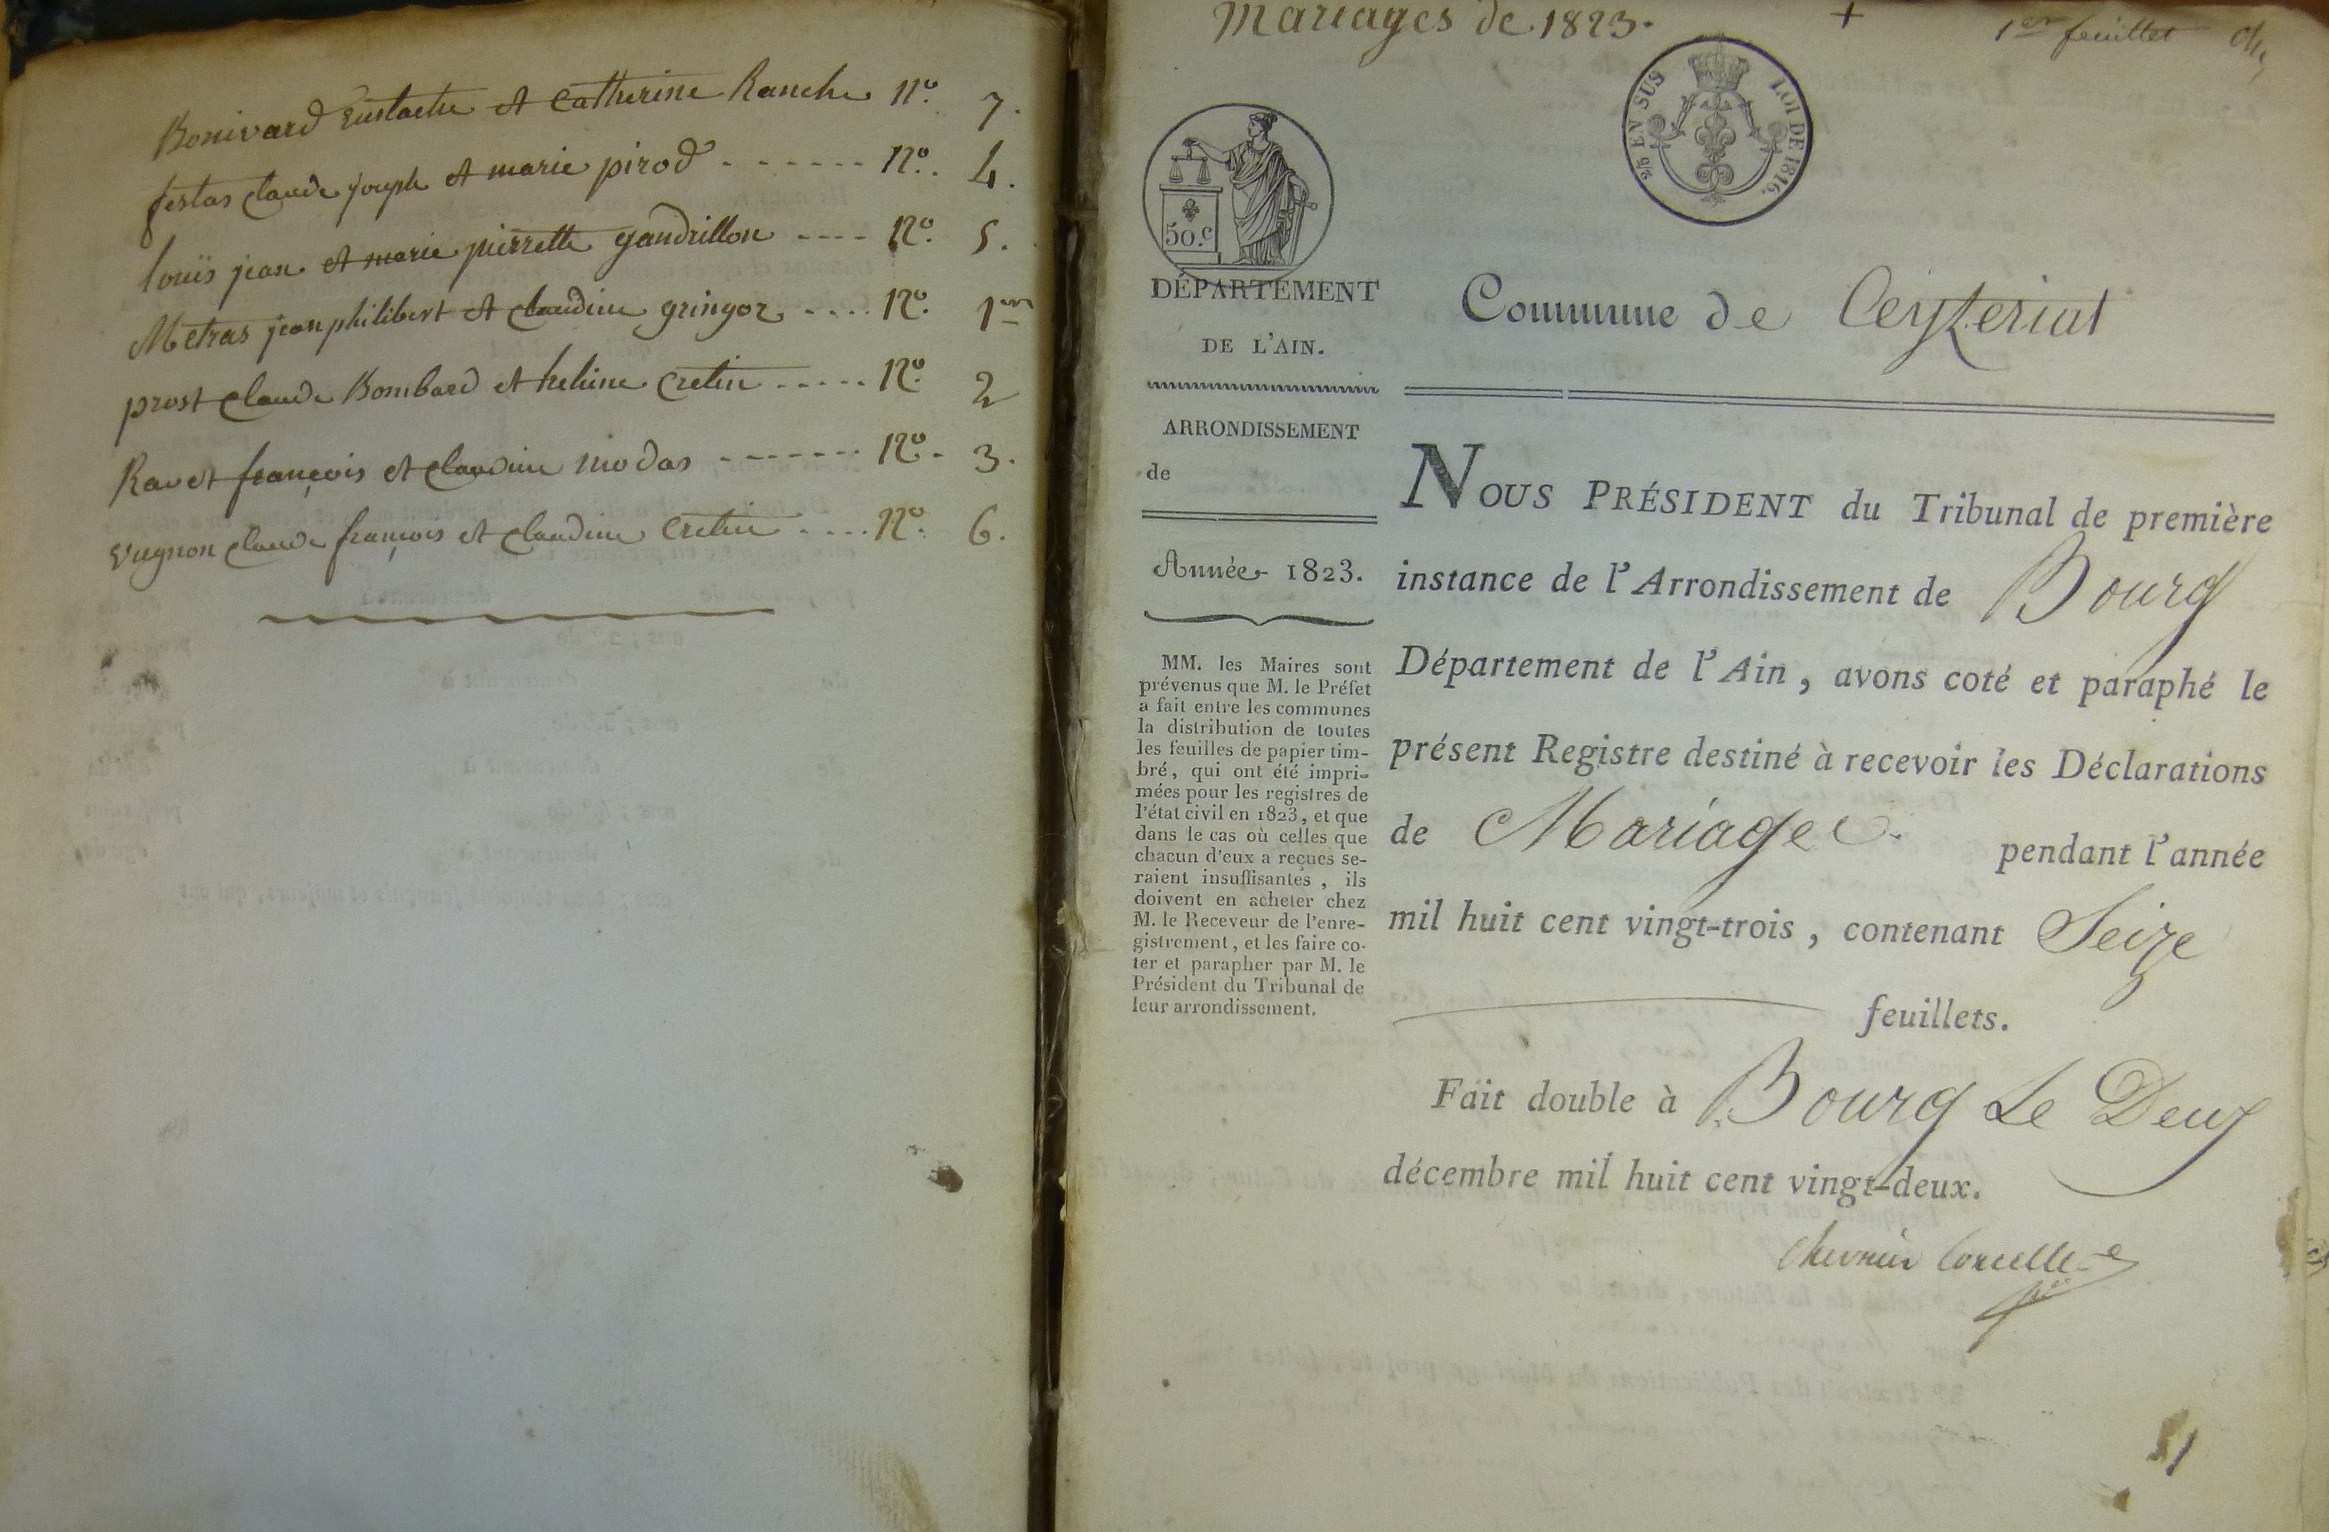 Bonivard Eustache et Catherine Ranche N.º 7.
festas claude joseph et marie pirod ------- N.º. 4.
louïs jean et marie pierrette gaudrillon ---- N.º. 5.
Metras jean philibert et claudine gringoz ---- N.º. 1er
prost claude Bombard et heline Cretin ----- N.º. 2
Ravet françois et claudine modas ------- N.º. 3.
vugnon claude françois et claudine Cretin ---- N.º. 6.
Mariages de 1823.
+
1er feuillet
50.c
2/5 EN SUS
LOI DE 1816.
DÉPARTEMENT
DE L'AIN.
ARRONDISSEMENT
de
Année 1823.
MM. les Maires sont
prévenus que M. le Préfet
a fait entre les communes
la distribution de toutes
les feuilles de papier tim-
bré, qui ont été impri-
mées pour les registres de
l'état civil en 1823, et que
dans le cas où celles que
chacun d'eux a reçues se-
raient insuffisantes, ils
doivent en acheter chez
M. le Receveur de l'enre-
gistrement, et les faire co-
ter et parapher par M. le
Président du Tribunal de
leur arrondissement.
Commune de Ceyzeriat
NOUS PRÉSIDENT du Tribunal de première
instance de l'Arrondissement de Bourg
Département de l'Ain, avons coté et paraphé le
présent Registre destiné à recevoir les Déclarations
de Mariages pendant l'année
mil huit cent vingt-trois, contenant Seize
feuillets.
Fait double à Bourg Le Deux
décembre mil huit cent vingt-deux.
Chevrier Corcelle